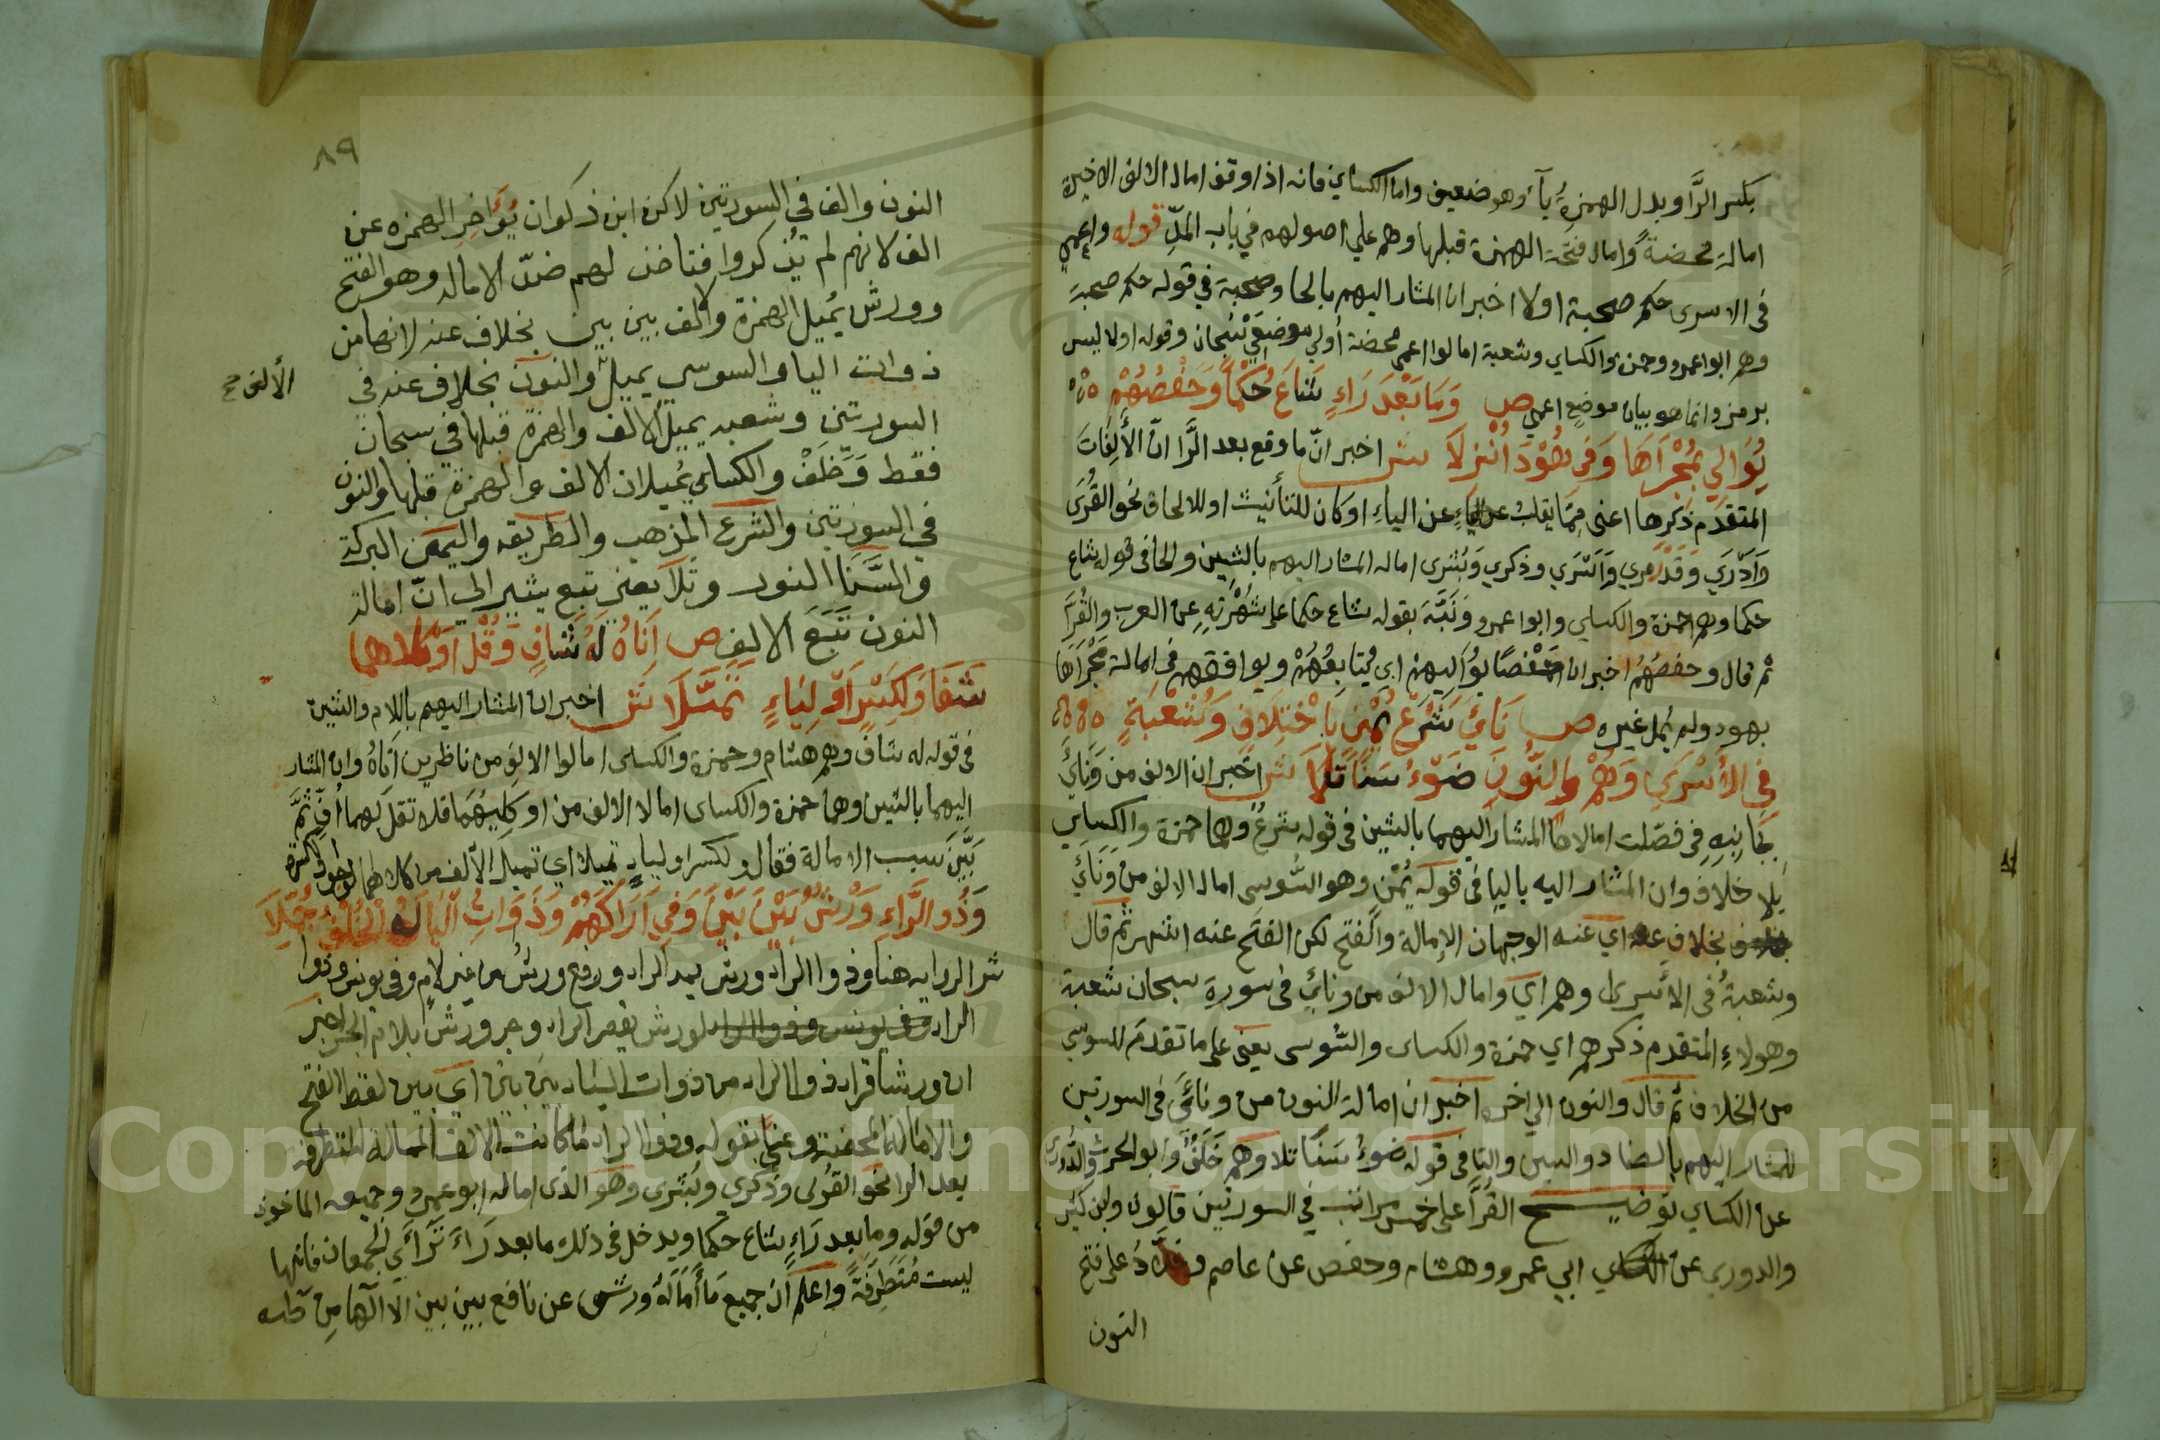 بكسر الرَّا وبدل الهمزةُ يآءً وهو ضعيف واما الكساي فانه اذا وقف امال الالف الاخيرة
امالةِ محضةً وامال فتحة الهمزة قبلها وهم علي اصولهم في باب المدِّ قوله واعمي
في الاسري حكم صحبة اولا اخبر ان المشار اليهم بالحا وصحبة في قوله حكم صحبة
وهم ابو عمرو وحمزة والكساي وشعبة امالوا اعمي محضة أولي موضعَيْ سُبحان وقوله اولا ليس
برمز وانما هو بيان موضع اعمي ص وَمَا بَعْدَ رَاءٍ شَاعَ حُكْمًا وَحَفْصُهُمْ
يُوَالِي بِمُجْرَاهَا وَفِي هُوْدَ اُنْزِلَا ش اخبر انّ ما وقع بعد الرَّا انّ الأَلِفَاتَ
المتقدم ذكرها اعني ممّا ينقلب عن الياءِ او كان للتأنيث او للالحاق نحو القُرَى
وَأَدْرَي وَقَدْ نَرَي وَاَشْتَرَي وذكري وَبُشرى اماله المشار اليهم بالشين والحا في قوله شاع
حكما وهم حمزة والكساي وابو عمرو وَنَبَّهَ بقوله شاع حكما علي شهْرَتِهِ عن العرب والقُرَّا
ثم قال وحفصُهُم اخبر ان حَفْصًا يُوَاليهم اي يُتابِعُهُمْ ويوافقهم في امالة مَجْرَاهَا
بهود ولم يُمل غيره ص نَأَي شَرْعُ يُمْنٍ بِاخْتِلَافٍ وَشُعْبَةٌ
فِي الأَسْرَي وَهُمْ والنُّونَ ضَوْءُ سَنًا تَلَا ش اخبر ان الالف من وَنَأَيَ
بِجَانِبِهِ في فصّلت امالاها المشار اليهما بالشين في قوله شرعُ وهما حمزة والكساي
بلا خلاف وان المشار اليه باليا في قوله يُمْنٍ وهو السُّوسي امال الالف من وَنَأَيَ
بخلافٍ عنه اي عنه الوجهان الإمالة والفتح لكن الفتح عنه اشهر ثم قال
وشعبةُ في الأَسرى وهم اي وامال الالف من ونأي في سورة سبحان شعبة
وهولاءِ المتقدم ذكرهم اي حمزة والكساى والسُّوسى يعني على ما تقدم للسوسي
من الخلاف ثم قال والنون الي اخره اخبر ان امالة النون من ونأي في السورتين
للمشار اليهم بالضاد والسين والتا في قوله ضوءُ سَنًا تلا وهم خَلَفٌ وابو الحرث والدُّوري
عن الكساي توضيح القُرَّا علي خمس مراتب في السورتين قالون وابن كثير
والدوري عن ابي عمرو وهشام وحفص عن عاصم وخلّادُ على فتح
النون
٨٩
النون والالف في السورتين لاكن ابن ذكوان يُؤَاخِرُ الهمزه عن
الف لانهم لم يُذكروا فتاخذ لهم ضدّ الامالة وهو الفتح
وورش يُميل الهمزة والالف بين بين بخلاف عنه لانها من
ذوات اليا والسوسي يميل والنون بخلاف عنه في
الألف صح
السورتين وشعبه يميل الالف والهمزة قبلها في سبحان
فقط وَخَلَفْ والكساي يُميلان الالف والهمزة قبلها والنون
في السورتين والشرع المذهب والطريقه واليمن البركة
والسَّنَا النور وتلا يعني تبع يشير الي انّ امالة
النون تَبَعَ الالف ص اَنَاهُ لَهُ شَافٍ وَقُلْ اَوْ كِلاهما
شَفَا وَلِكَسْرٍ اَوْ لِيَاءٍ تَمَيَّلَا ش اخبر ان المشار اليهم باللام والشين
في قوله له شاف وهم هشام وحمزة والكساي امالوا الالف من ناظرين اَناهُ وان المشار
اليهما بالشين وهما حمزة والكساى امالا الالف من او كِليهُمَا فلا تقل لهما أُفٍّ ثمَّ
بَيَّنَ سبب الامالة فقال ولكسر او لياءٍ تميلا اي تميل الالف من كلاهما
وَذُو الرَّاءِ وَرْشٌ بَيْنَ بَيْنَ وَفِي اَرَاكَهُمْ وَذَوَاتِ الْيَا لَهُ الْخُلْفُ جُمِّلَا
ش الروايه هنا وذو الراء ورش بمد الراء ورفع ورشُ من غير لام وفي يونس وذوا
الراء لورش بقصر الراء وجر ورشٍ بلام الجر اخبر
ان ورشا قرا ذو الراء من ذوات الياء بين بين اي بين لفظ الفتح
والامالة المحضة وعني بقوله وذو الراء ما كانت الالف الممالة المتطرفة
بعد الرا نحو القُرى وذكري وبُشرى وهو الذى اماله ابو عمرو وجميعه الماخوذ
من قوله وما بعد رَاءٍ شاع حكما ويدخل في ذلك ما بعد رَاءَ تَرَأَي الجمعان فانها
ليست مُتَطَرِفَةً واعلم اَن جميع مَا أَمَالَهُ ورش عن نافع بين بين الا الها من طه